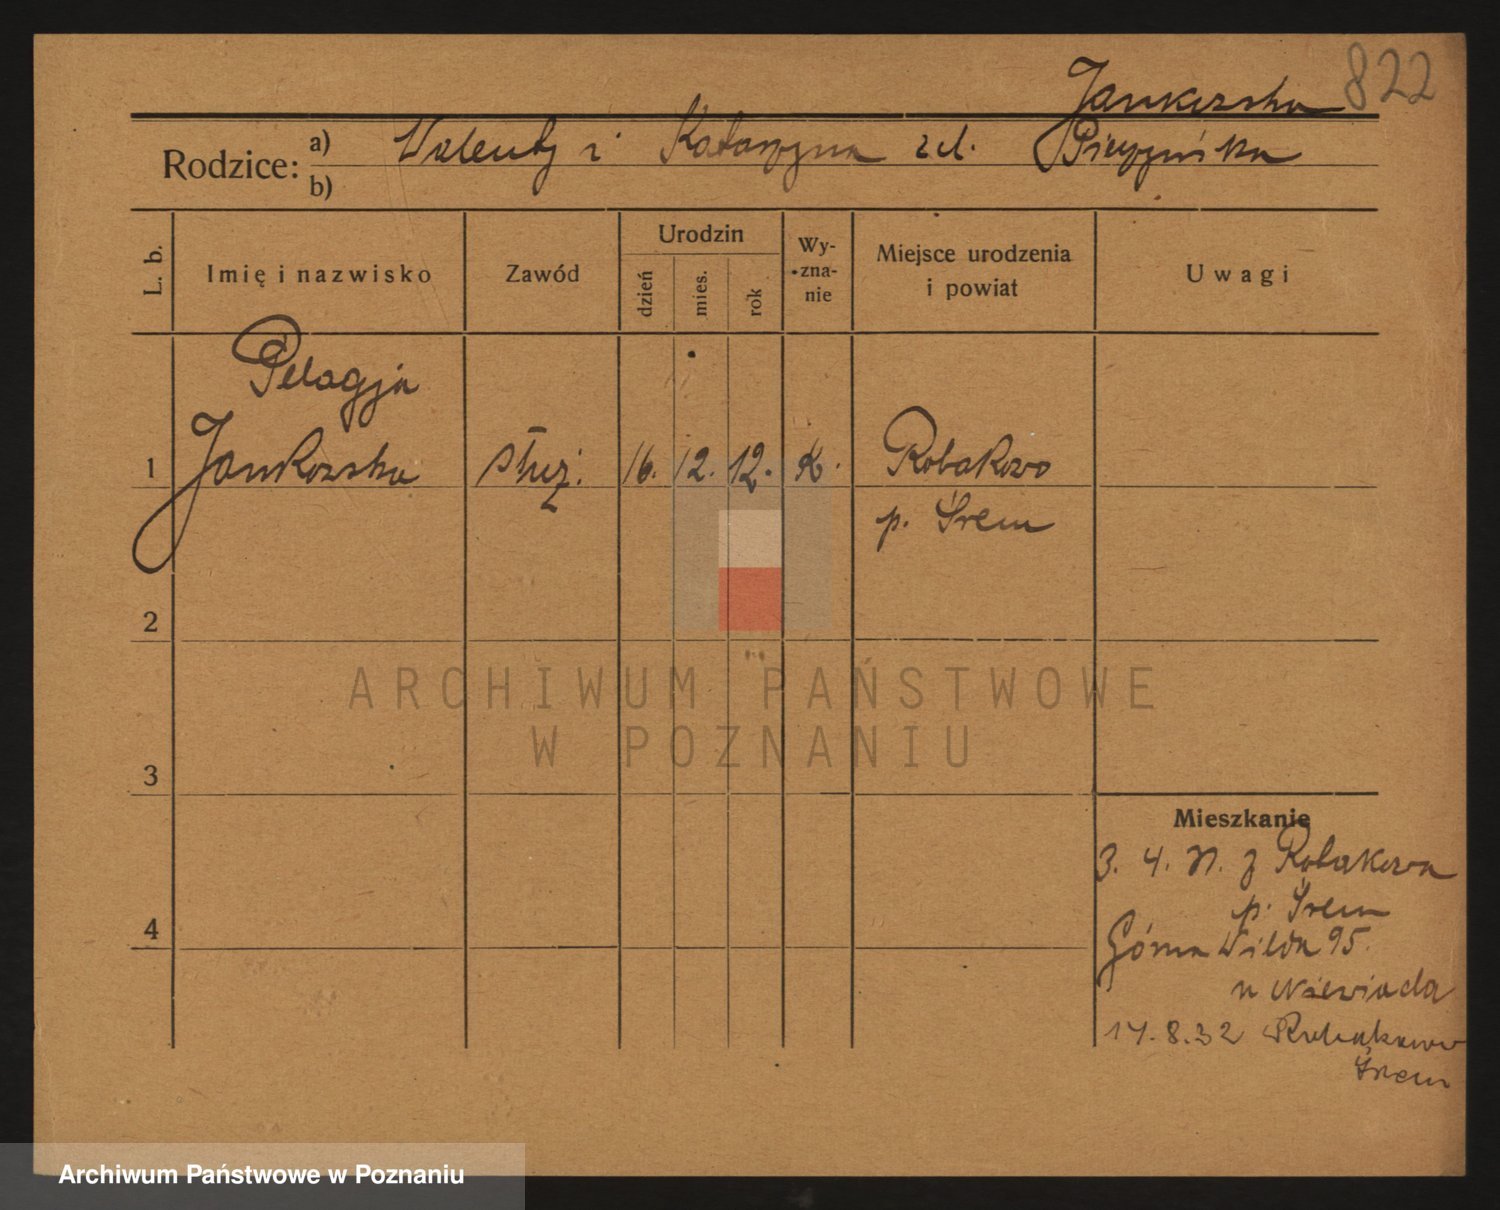 Jankowska 822
Rodzice: a) Walenty i Katarzyna z d.
b)
L. b.
Imię i nazwisko
Zawód
Urodzin
dzień
mies.
rok
Wy-
zna-
nie
Miejsce urodzenia
i powiat
Uwagi
Pelagja
1 Jankowska służ. 16. 12. 12. K. Robakowo
p. Śrem
2
3
4
Mieszkanie
3. 4. z Robakowa
p. Śrem
Górna Wilda 95.
u Niewiada
17.8.32 Robakowo
Śrem
ARCHIWUM PAŃSTWOWE
W POZNANIU
Archiwum Państwowe w Poznaniu